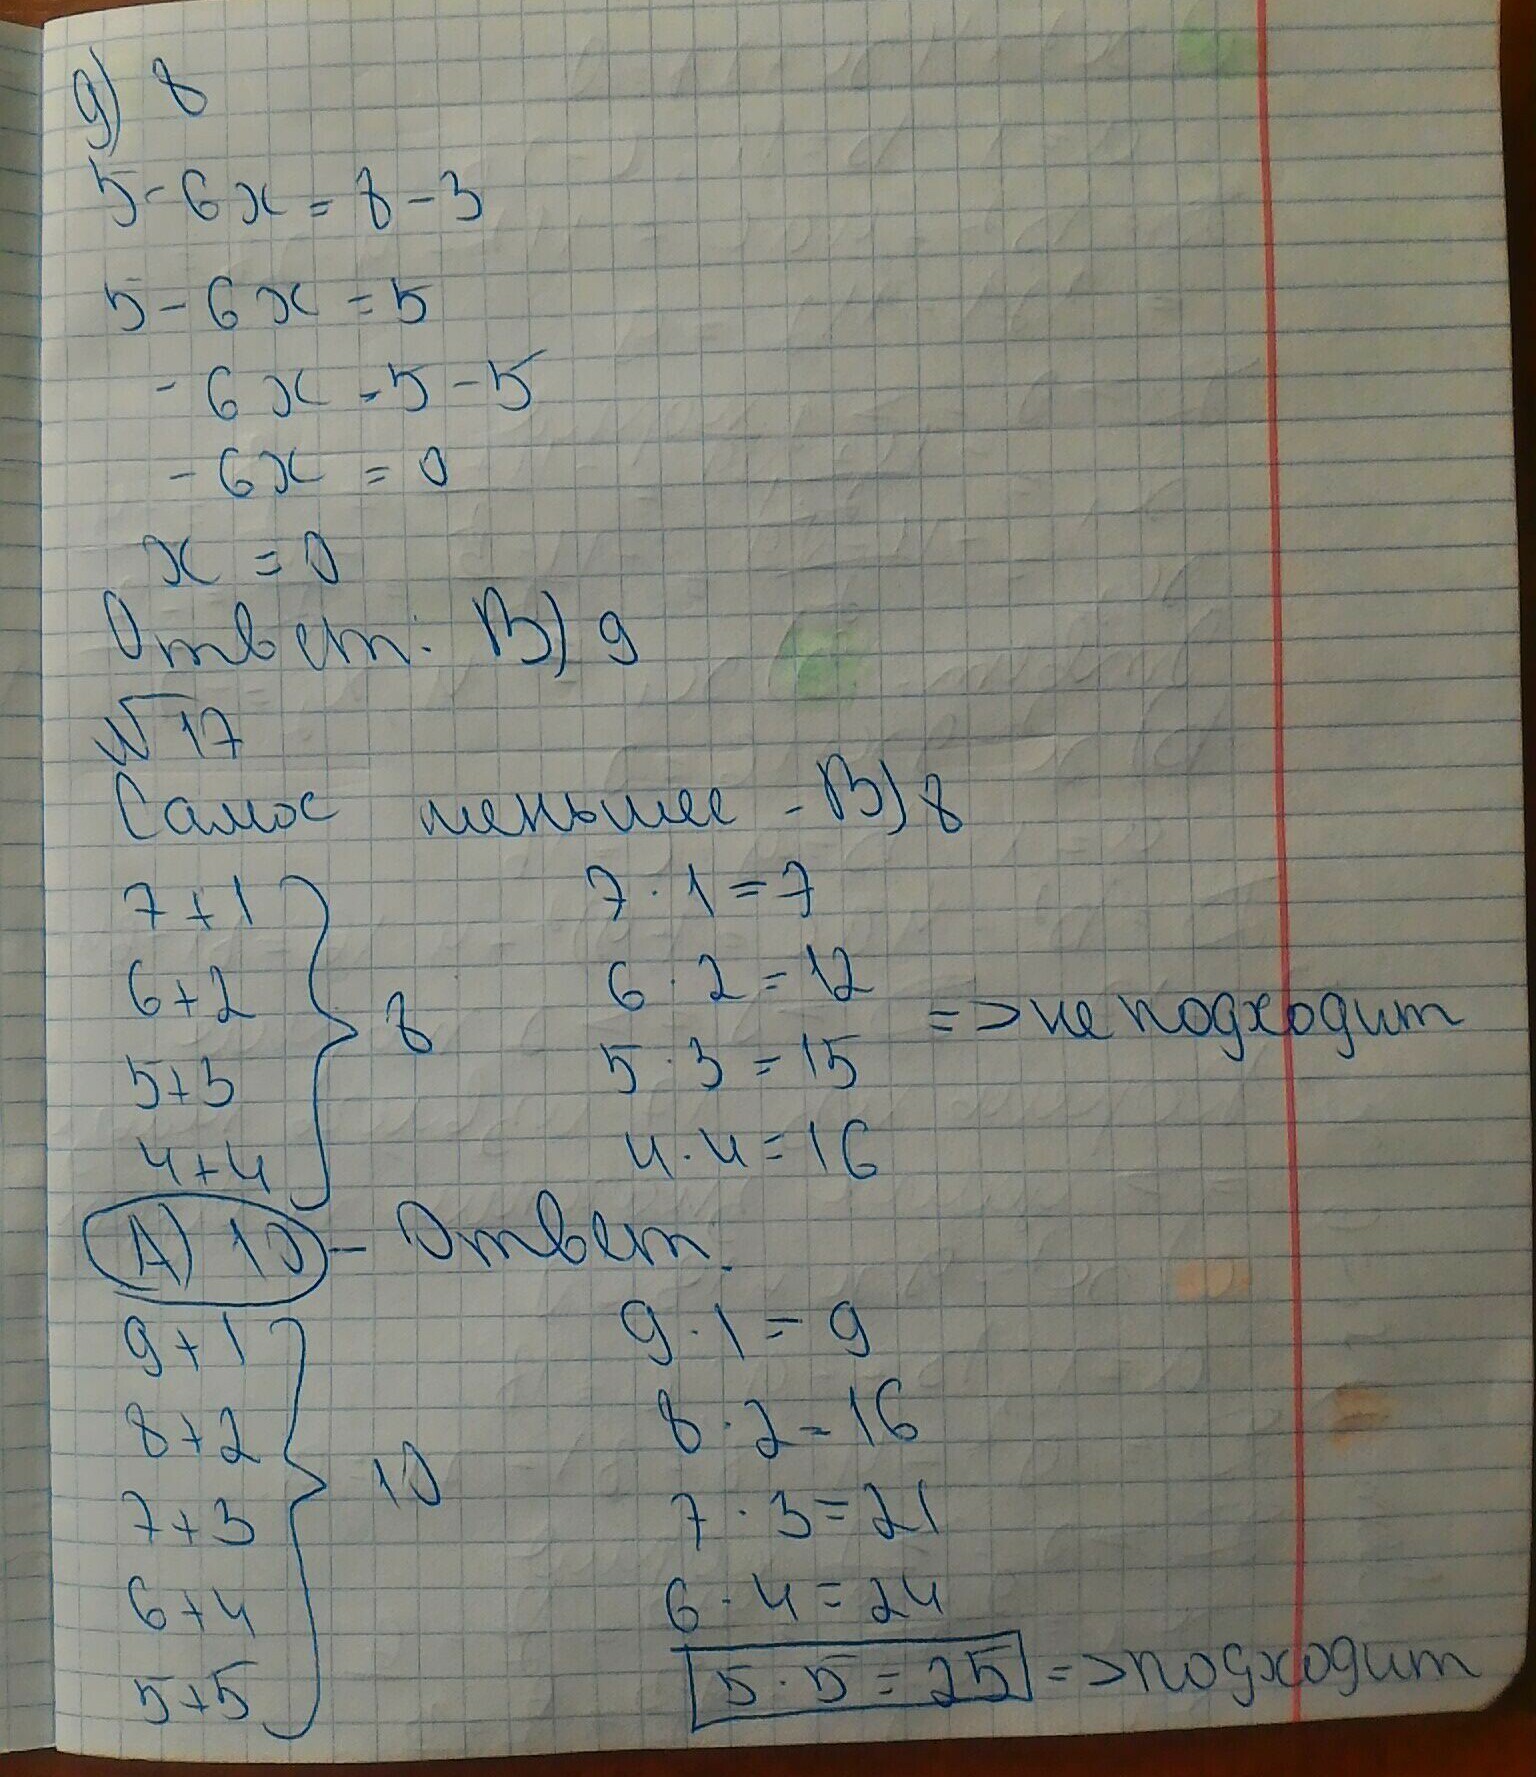 д) 8
5-6x=8-3
5-6x=5
-6x=5-5
-6x=0
x=0
Ответ: В) 9
№17
Самое меньшее - В) 8
7+1 7·1=7
6+2 6·2=12
8 => не подходит
5+3 5·3=15
4+4 4·4=16
А) 10 - Ответ.
9+1 9·1=9
8+2 8·2=16
10
7+3 7·3=21
6+4 6·4=24
5+5 5·5=25 => подходит